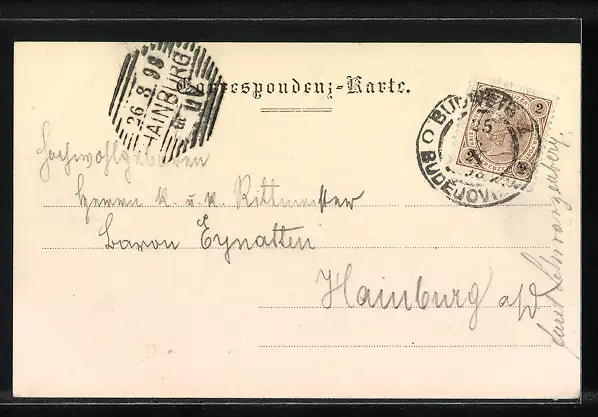 Correspondenz-Karte.
26.8.98
HAINBURG
BUDWEIS
BUDĚJOVI
2
2
Hochwohlgeboren
Herrn K. u. k. Rittmeister
Baron Eynatten
Hainburg a/D
Schwarzenberg